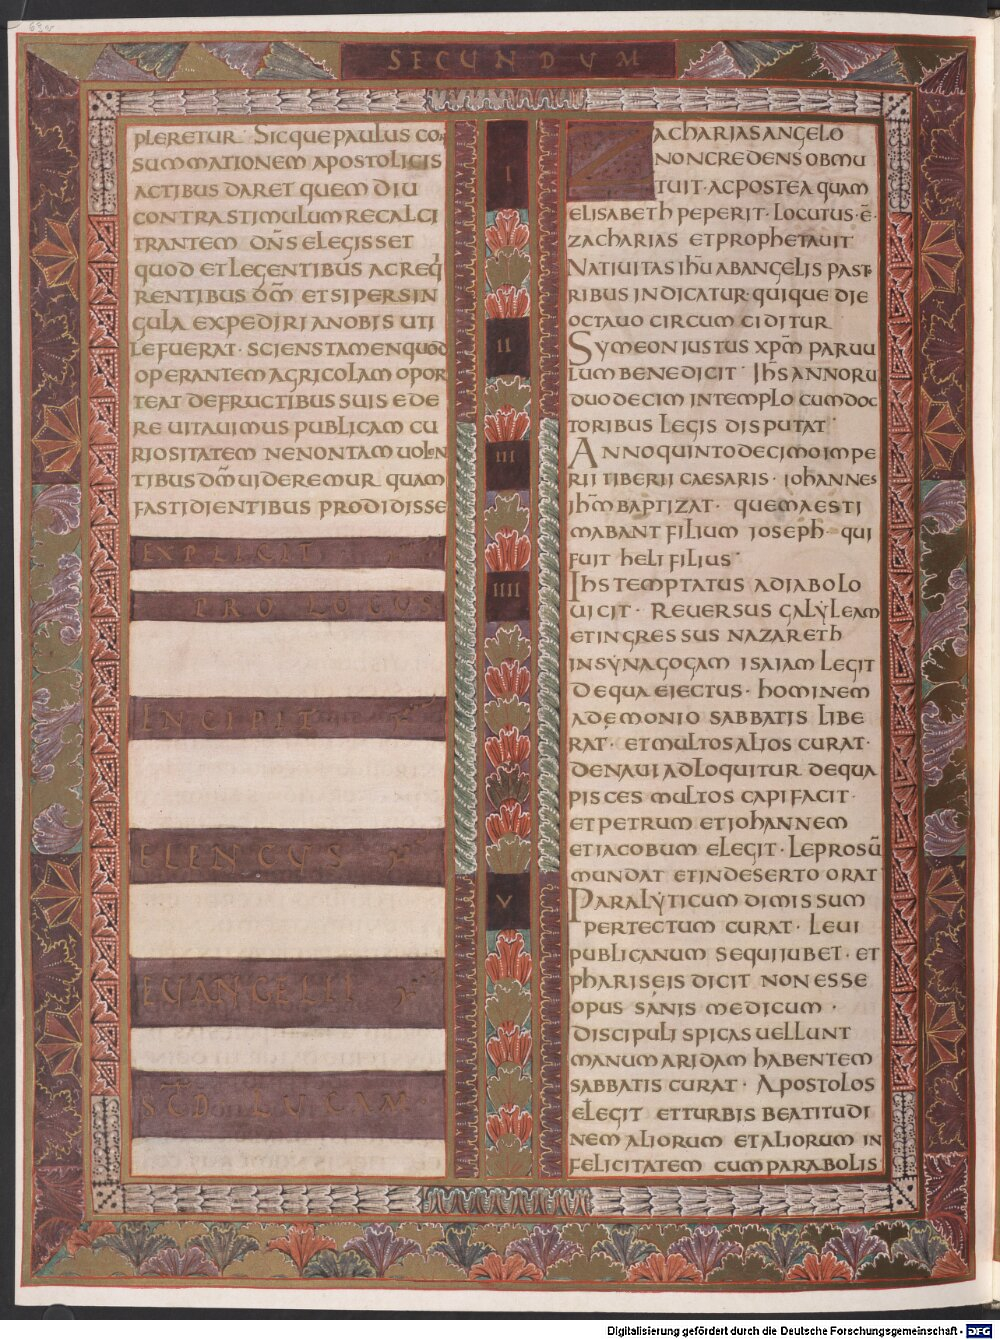 63v
SECUNDUM
PLERETUR · SICQUE PAULUS CON
SUMMATIONEM APOSTOLICIS
ACTIBUS DARET QUEM DIU
CONTRA STIMULUM RECALCI
TRANTEM DN̄S ELEGISSET
QUOD ET LEGENTIBUS AC REQ
RENTIBUS DM̄ ETSI PER SIN
GULA EXPEDIRI A NOBIS UTI
LE FUERAT · SCIENS TAMEN QUOD
OPERANTEM AGRICOLAM OPOR
TEAT DE FRUCTIBUS SUIS EDE
RE UITAUIMUS PUBLICAM CU
RIOSITATEM NE NON TAM UOLEN
TIBUS DM̄ UIDEREMUR QUAM
FASTIDIENTIBUS PRODIDISSE
EXPLICIT
PROLOGUS
INCIPIT
ELENCUS
EUANGELII
SC̄D LUCAM
I
II
III
IIII
V
ZACHARIAS ANGELO
NON CREDENS OBMU
TUIT · AC POSTEA QUAM
ELISABETH PEPERIT · LOCUTUS · Ē ·
ZACHARIAS ET PROPHETAUIT
NATIUITAS IH̄U AB ANGELIS PAST
RIBUS INDICATUR QUIQUE DIE
OCTAUO CIRCUMCIDITUR
SYMEON IUSTUS XPM̄ PARUU
LUM BENEDICIT · IH̄S ANNORU
DUODECIM IN TEMPLO CUM DOC
TORIBUS LEGIS DISPUTAT
ANNO QUINTO DECIMO IMPE
RII TIBERII CAESARIS · IOHANNES
IHM̄ BAPTIZAT · QUEM AESTI
MABANT FILIUM IOSEPH · QUI
FUIT HELI FILIUS
IHS TEMPTATUS A DIABOLO
UICIT · REUERSUS GALYLEAM
ET INGRESSUS NAZARETH
IN SYNAGOGAM ISAIAM LEGIT
DE QUA EIECTUS · HOMINEM
A DEMONIO SABBATIS LIBE
RAT · ET MULTOS ALIOS CURAT ·
DE NAUI ADLOQUITUR DE QUA
PISCES MULTOS CAPI FACIT ·
ET PETRUM ET IOHANNEM
ET IACOBUM ELEGIT · LEPROSŪ
MUNDAT ET IN DESERTO ORAT
PARALYTICUM DIMISSUM
PER TECTUM CURAT · LEUI
PUBLICANUM SEQUI IUBET · ET
PHARISEIS DICIT NON ESSE
OPUS SANIS MEDICUM ·
DISCIPULI SPICAS UELLUNT
MANUM ARIDAM HABENTEM
SABBATIS CURAT · APOSTOLOS
ELEGIT ET TURBIS BEATITUDI
NEM ALIORUM ET ALIORUM IN
FELICITATEM CUM PARABOLIS
Digitalisierung gefördert durch die Deutsche Forschungsgemeinschaft - DFG